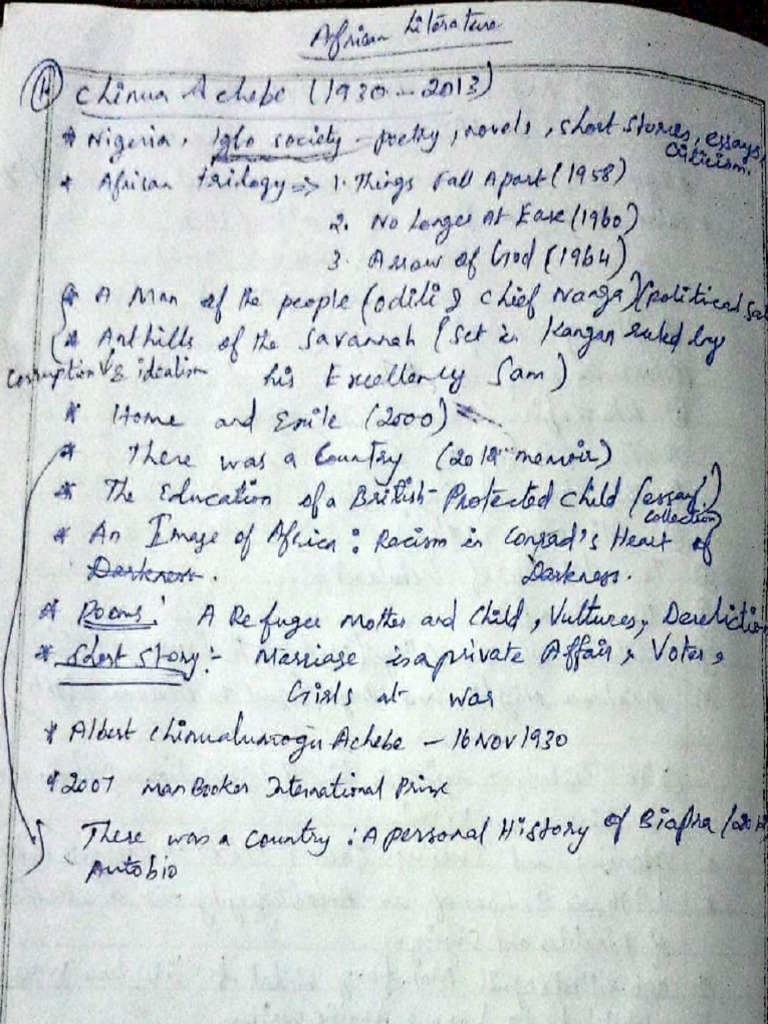 African Literature
1) Chinua Achebe (1930 - 2013)
* Nigeria, Igbo society - poetry, novels, short stories, essays, criticism.
* African trilogy => 1. Things Fall Apart (1958)
2. No Longer At Ease (1960)
3. Arrow of God (1964)
* A Man of the people (Odili & Chief Nanga) (political sat
* Anthills of the Savannah (set in Kangan ruled by
corruption & idealism his Excellency Sam)
* Home and Exile (2000)
* There was a Country (2012 memoir)
* The Education of a British-Protected Child (essay collection)
* An Image of Africa : Racism in Conrad's Heart of
Darkness. Darkness.
* Poems: A Refugee Mother and Child, Vultures, Dereliction
* Short Story:- Marriage is a private Affair, Voter,
Girls at war
* Albert Chinualumogu Achebe - 16 Nov 1930
* 2007 Man Booker International Prize
There was a country : A personal History of Biafra (201
Autobio